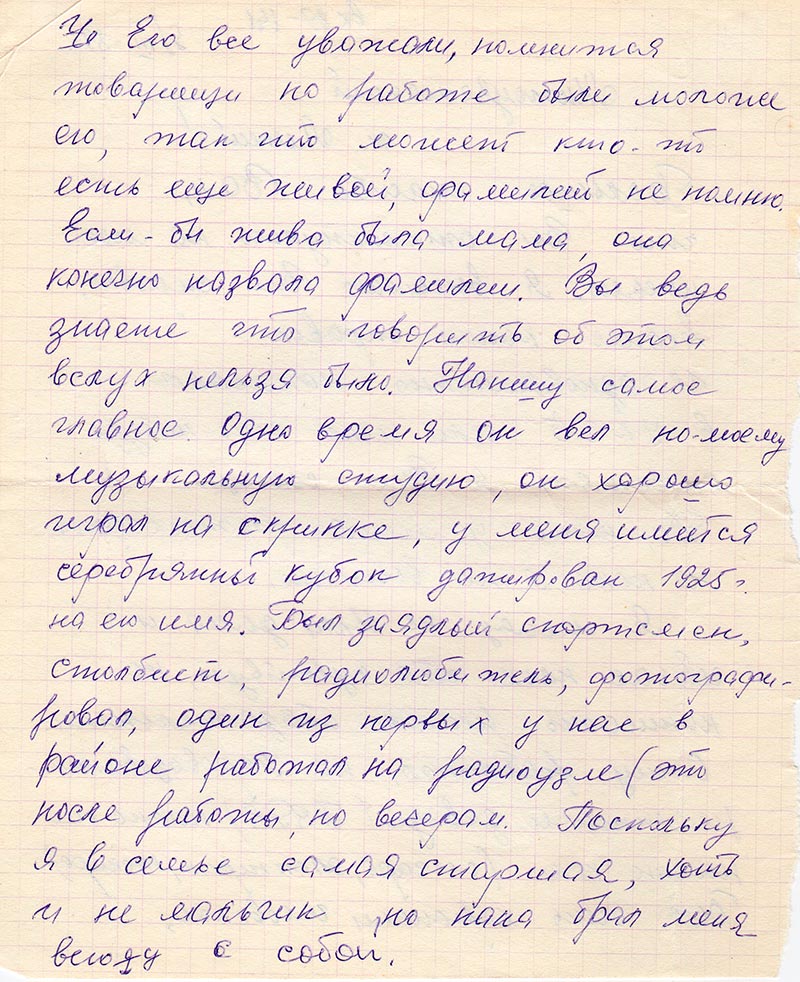 Его все уважали, помнится
товарищи по работе были моложе
его, так что может кто-то
есть еще живой, фамилий не помню.
Если-бы жива была мама, она
конечно назвала фамилии. Вы ведь
знаете что говорить об этом
вслух нельзя было. Напишу самое
главное. Одно время он вел по-моему
музыкальную студию, он хорошо
играл на скрипке, у меня имеется
серебряный кубок датирован 1925г.
на его имя. Был заядлый спортсмен,
столбист, радиолюбитель, фотографи-
ровал, один из первых у нас в
районе работал на радиоузле (это
после работы, по вечерам. Поскольку
я в семье самая старшая, хоть
и не мальчик, но папа брал меня
всюду с собой.